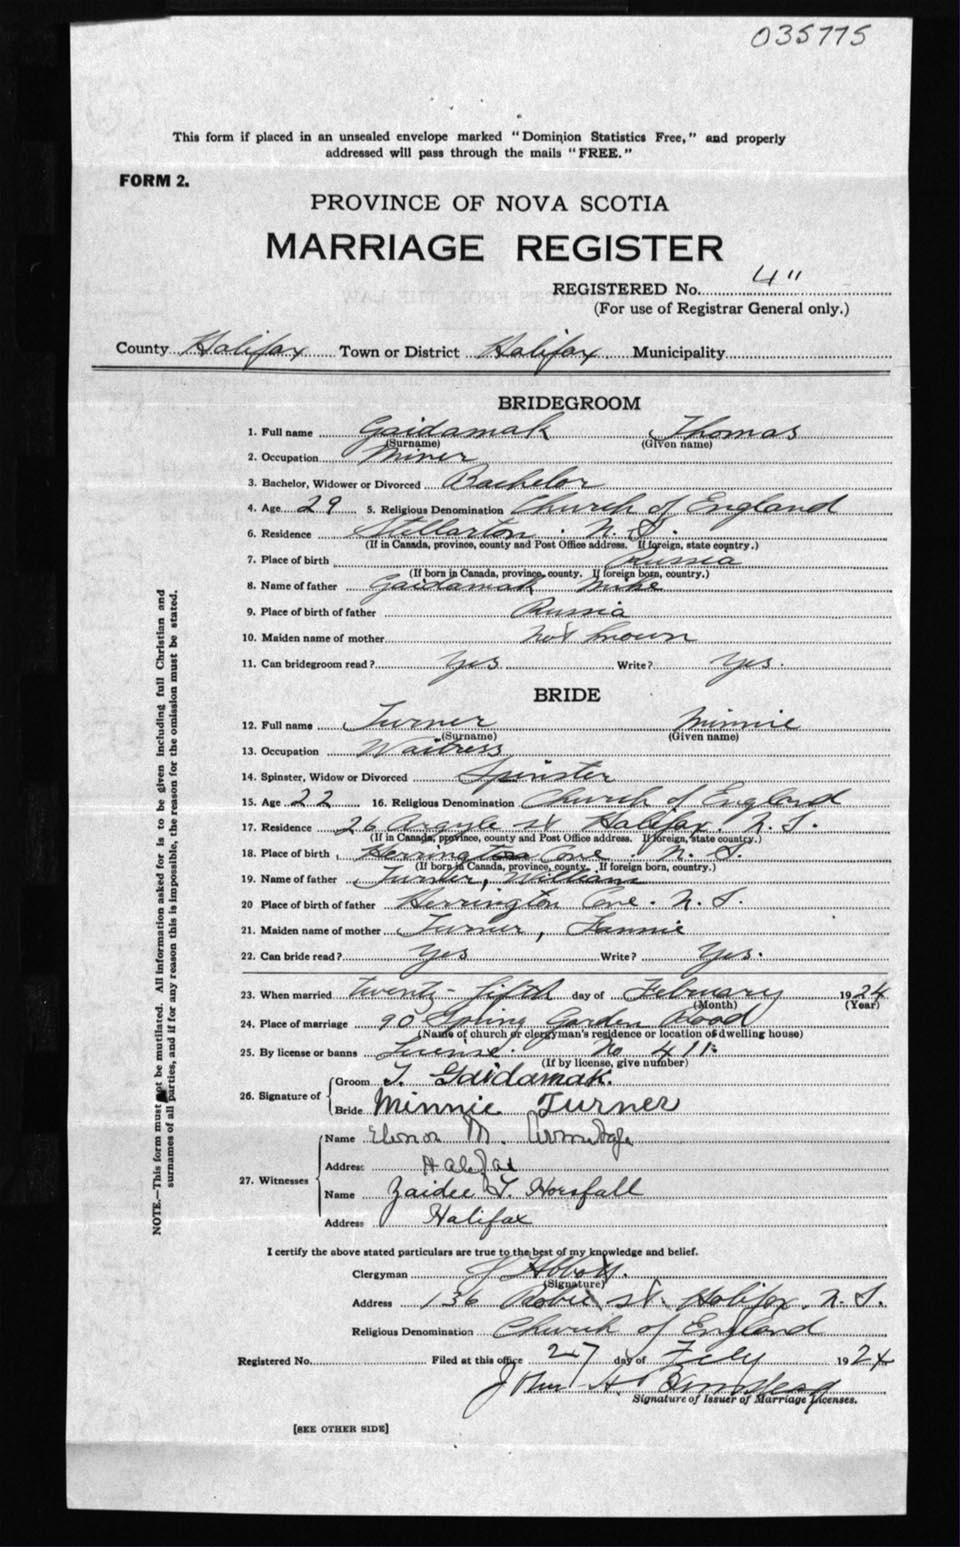 035775
This form if placed in an unsealed envelope marked "Dominion Statistics Free," and properly
addressed will pass through the mails "FREE."
FORM 2.
PROVINCE OF NOVA SCOTIA
MARRIAGE REGISTER
REGISTERED No. 4"
(For use of Registrar General only.)
County Halifax Town or District Halifax Municipality
BRIDEGROOM
1. Full name Gaidamak Thomas
(Surname) (Given name)
2. Occupation Miner
3. Bachelor, Widower or Divorced Bachelor
4. Age 29 5. Religious Denomination Church of England
6. Residence Stellarton . N. S.
(If in Canada, province, county and Post Office address. If foreign, state country.)
7. Place of birth Russia
(If born in Canada, province, county. If foreign born, country.)
8. Name of father Gaidamak Mike
9. Place of birth of father Russia
10. Maiden name of mother not known
11. Can bridegroom read? Yes Write? Yes.
BRIDE
12. Full name Turner Minnie
(Surname) (Given name)
13. Occupation Waitress
14. Spinster, Widow or Divorced Spinster
15. Age 22 16. Religious Denomination Church of England
17. Residence 26 Argyle St Halifax. N. S.
(If in Canada, province, county and Post Office address. If foreign, state country.)
18. Place of birth Herrington Cove . N. S.
(If born in Canada, province, county. If foreign born, country.)
19. Name of father Turner, William
20 Place of birth of father Herrington Cove. N. S.
21. Maiden name of mother Turner, Fannie
22. Can bride read? Yes Write? Yes.
23. When married twenty-fifth day of February 1924
(Month) (Year)
24. Place of marriage 90 Spring Garden Road
(Name of church or clergyman's residence or location of dwelling house)
25. By license or banns License. No 411
(If by license, give number)
26. Signature of
Groom T. Gaidamak.
Bride Minnie Turner
27. Witnesses
Name Elenor M. Armitage
Address Halifax
Name Zaidee T. Horsfall
Address Halifax
I certify the above stated particulars are true to the best of my knowledge and belief.
Clergyman J Abbott.
(Signature)
Address 136 Robie St. Halifax, N. S.
Religious Denomination Church of England
Registered No. Filed at this office 27 day of Feby 1924
John H.
Signature of Issuer of Marriage Licenses.
[SEE OTHER SIDE]
NOTE.—This form must not be mutilated. All information asked for is to be given including full Christian and
surnames of all parties, and if for any reason this is impossible, the reason for the omission must be stated.